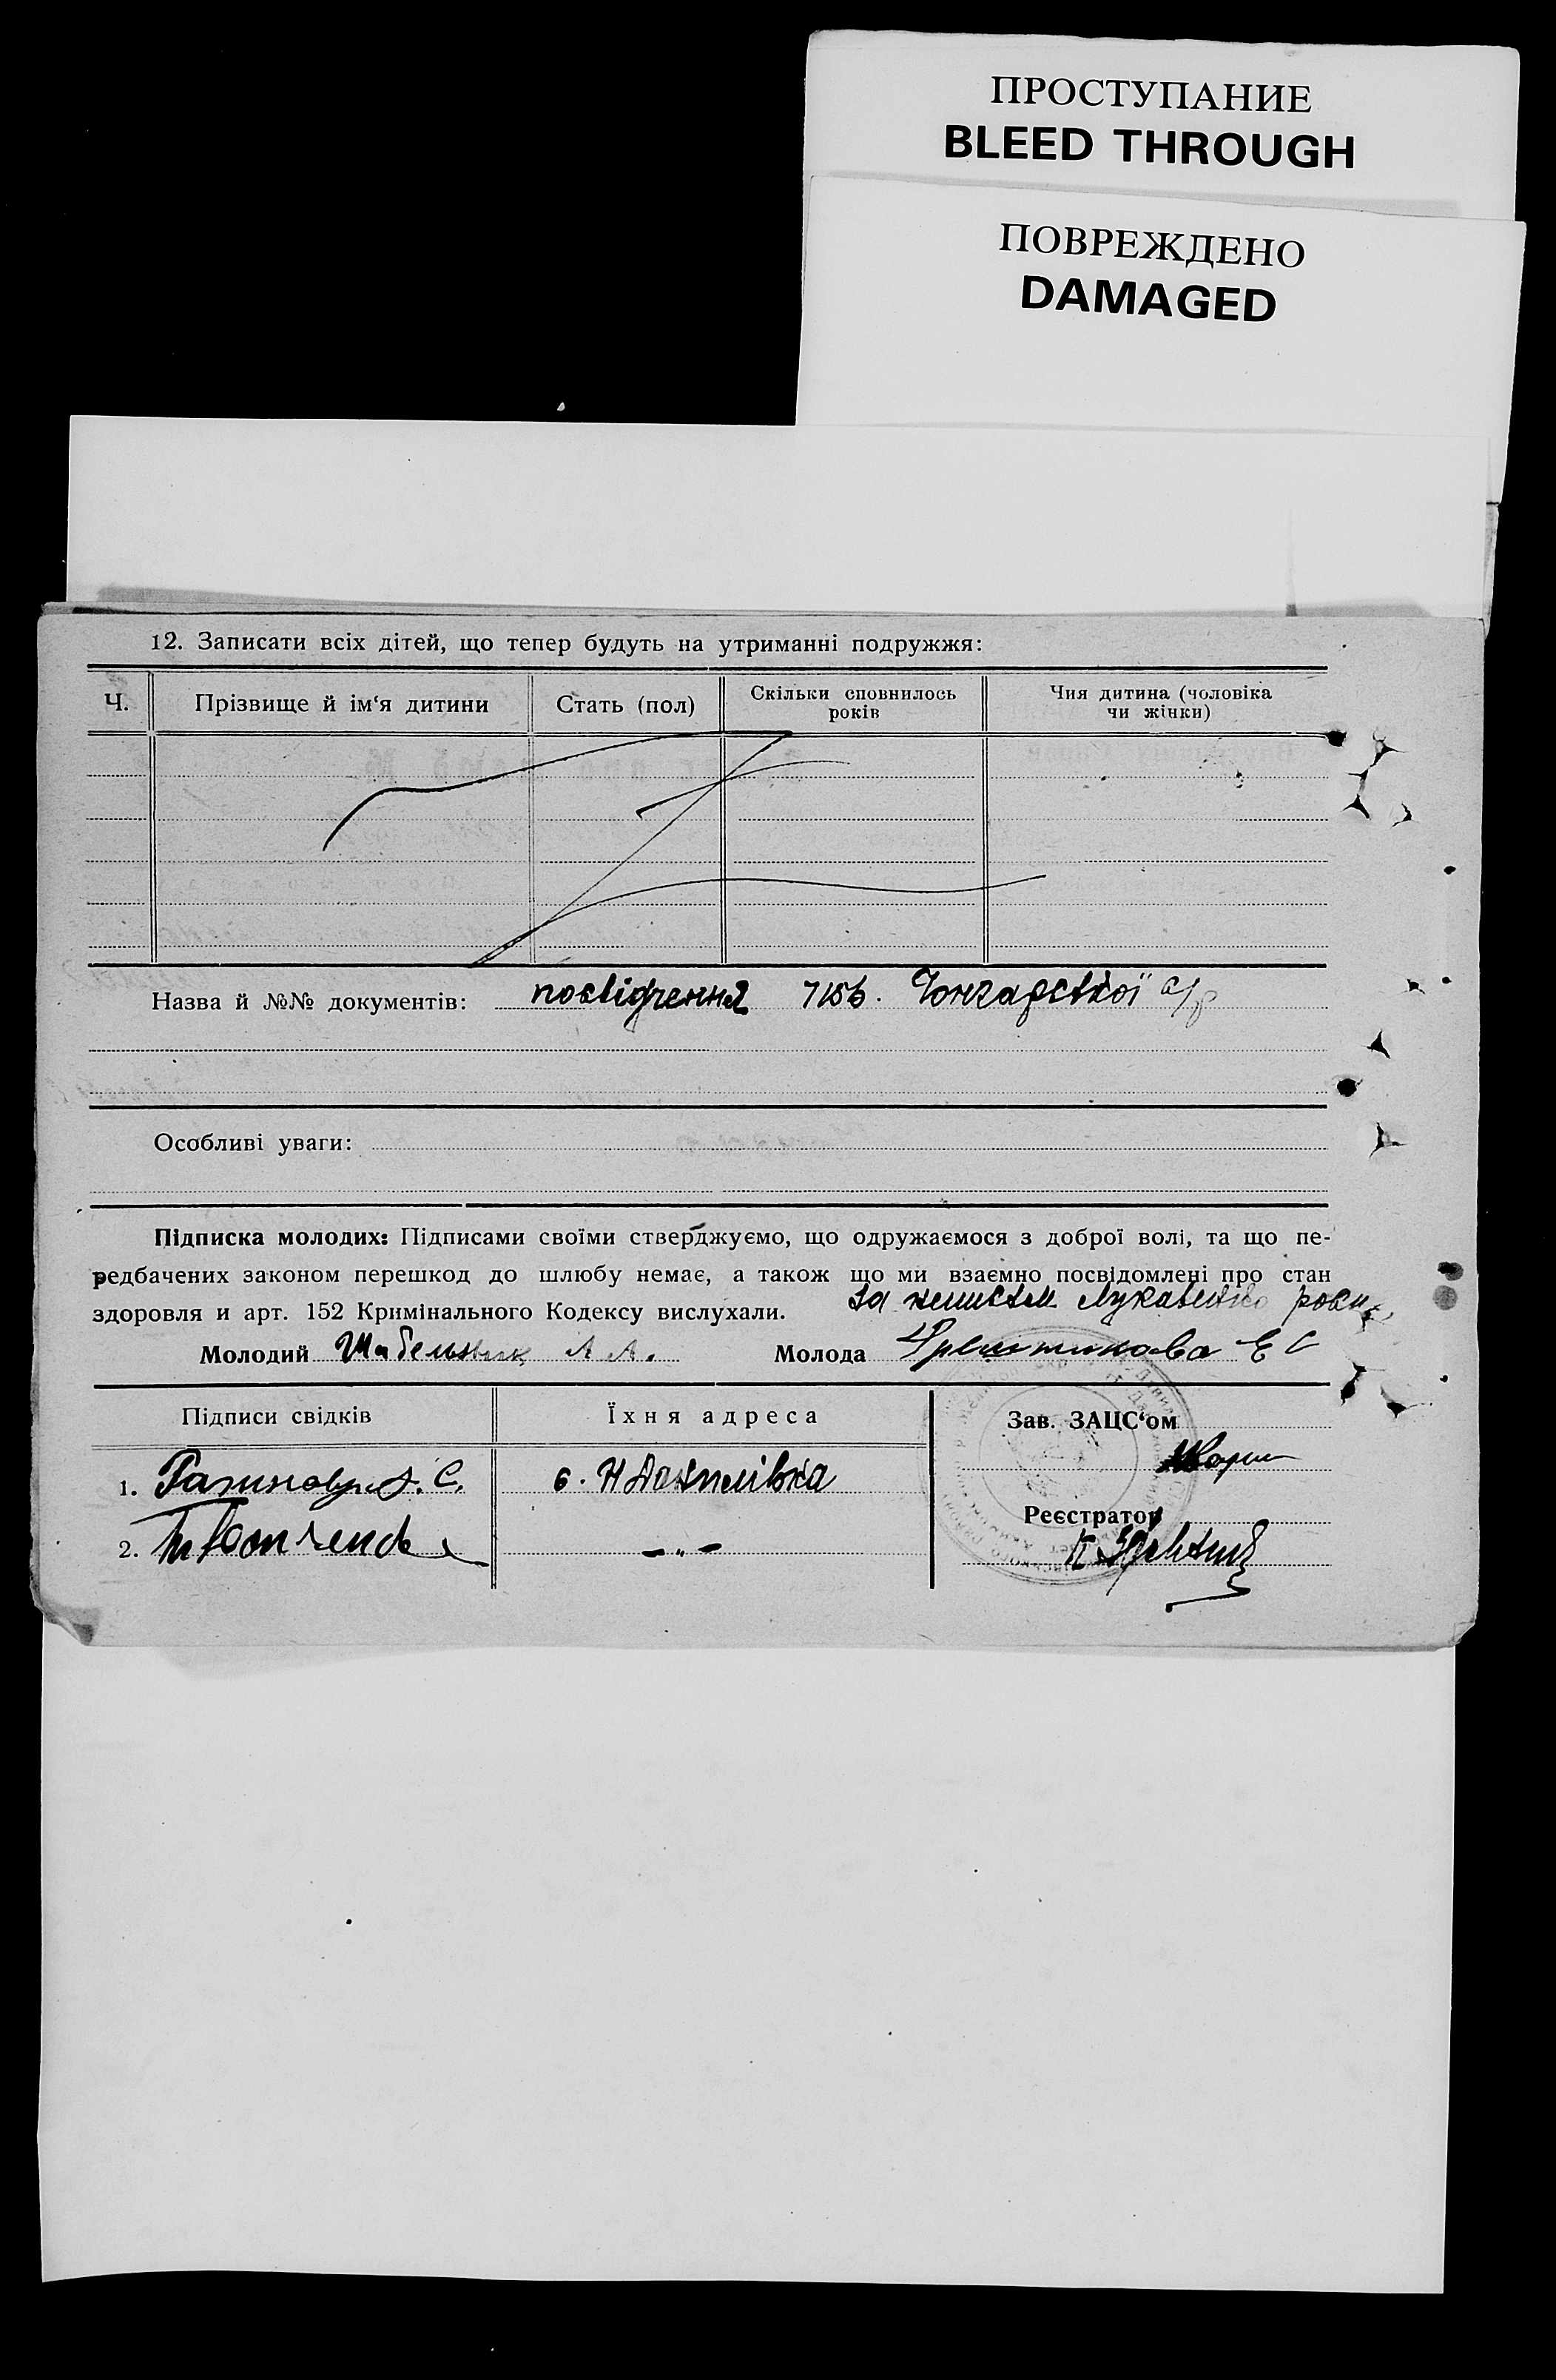 ПРОСТУПАНИЕ
BLEED THROUGH
ПОВРЕЖДЕНО
DAMAGED
12. Записати всіх дітей, що тепер будуть на утриманні подружжя:
Ч.
Прізвище й ім‘я дитини
Стать (пол)
Скільки сповнилось
років
Чия дитина (чоловіка
чи жінки)
Назва й №№ документів: посвідчення 7156. Чонгарської с/р
Особливі уваги:
Підписка молодих: Підписами своїми стверджуємо, що одружаємося з доброї волі, та що пе-
редбачених законом перешкод до шлюбу немає, а також що ми взаємно посвідомлені про стан
здоровля и арт. 152 Кримінального Кодексу вислухали.
за
Молодий А. А.
Молода Е С
Підписи свідків
Їхня адреса
Зав. ЗАЦС‘ом
1. С. с.
Реєстратор
2. —„—